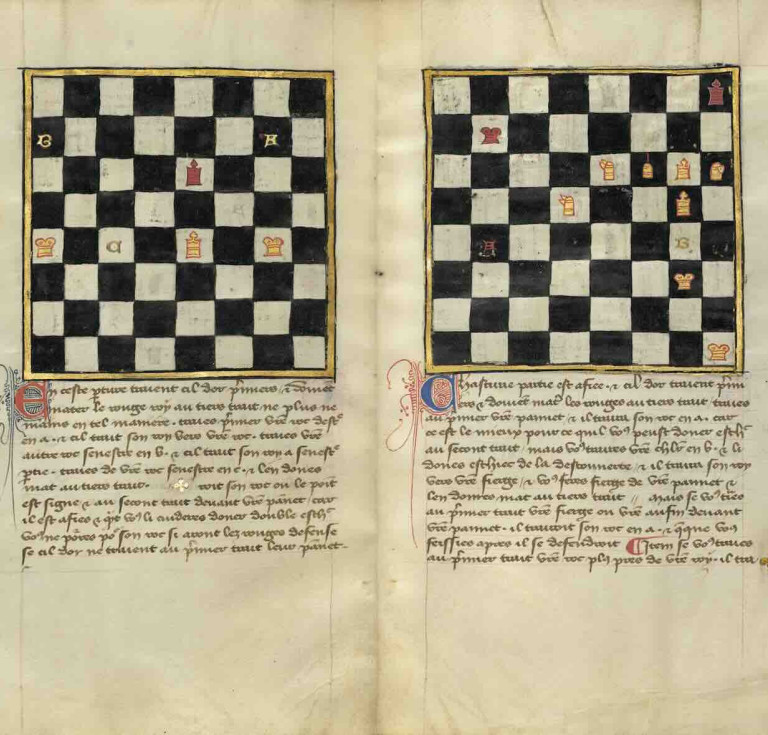 B A
C
En ceste parture traient cil dor premiers. & donnet
mater le rouge roy au tiers trait ne plus ne
mains en tel maniere. traiés premier vre roc destre
en .a. & cil trait son roy vers vre roc. traiés vre
autre roc senestre en b. & cil trait son roy a senestre
ptie. traiés de vre roc senestre en c. & len dones
mat au tiers trait. roit son roc ou le poit
est signe & au second trait devant vre paonet. car
il est afiés & qt vos li cuideres doner double esch
vos ne pores po son roc si aront les rouges defense
se cil dor ne traient au premier trait leur paonet.
A B
Chasture partie est afiee. & cil dor traient prim
iers & donnet mat les rouges au tiers trait. traiés
au primer vre paonet & il traira son roc en a. car
ce est le mieux pour ce quil vos peust doner esch
au second trait. mais vos traires vre chlr en b. & li
dones eschec de la descouverte. & il traira son roy
vers vre fierge & vos feres fierge de vre paonnet &
len dones mat au tiers trait // mais se vos tiés
au primer trait vre fierge ou vre aufin devant
vre paonnet. il trairoit son roc en a. & que que vos
feissies apres il se defendroit Item se vos traiés
au primer trait vre roc plus pres de vre roy. il trai